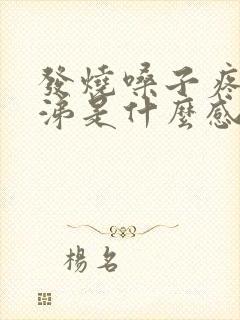 發燒嗓子疼
涕是什麼感
楊名